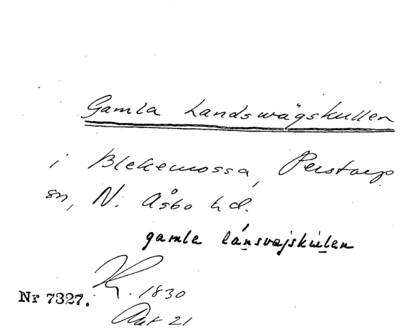 Gamla Landswägskullen
i Blekemossa, Perstorps
sn, N. Åsbo hd.
gamla lánsvejskúlen
K. 1830
Nr 7327.
Akt 21